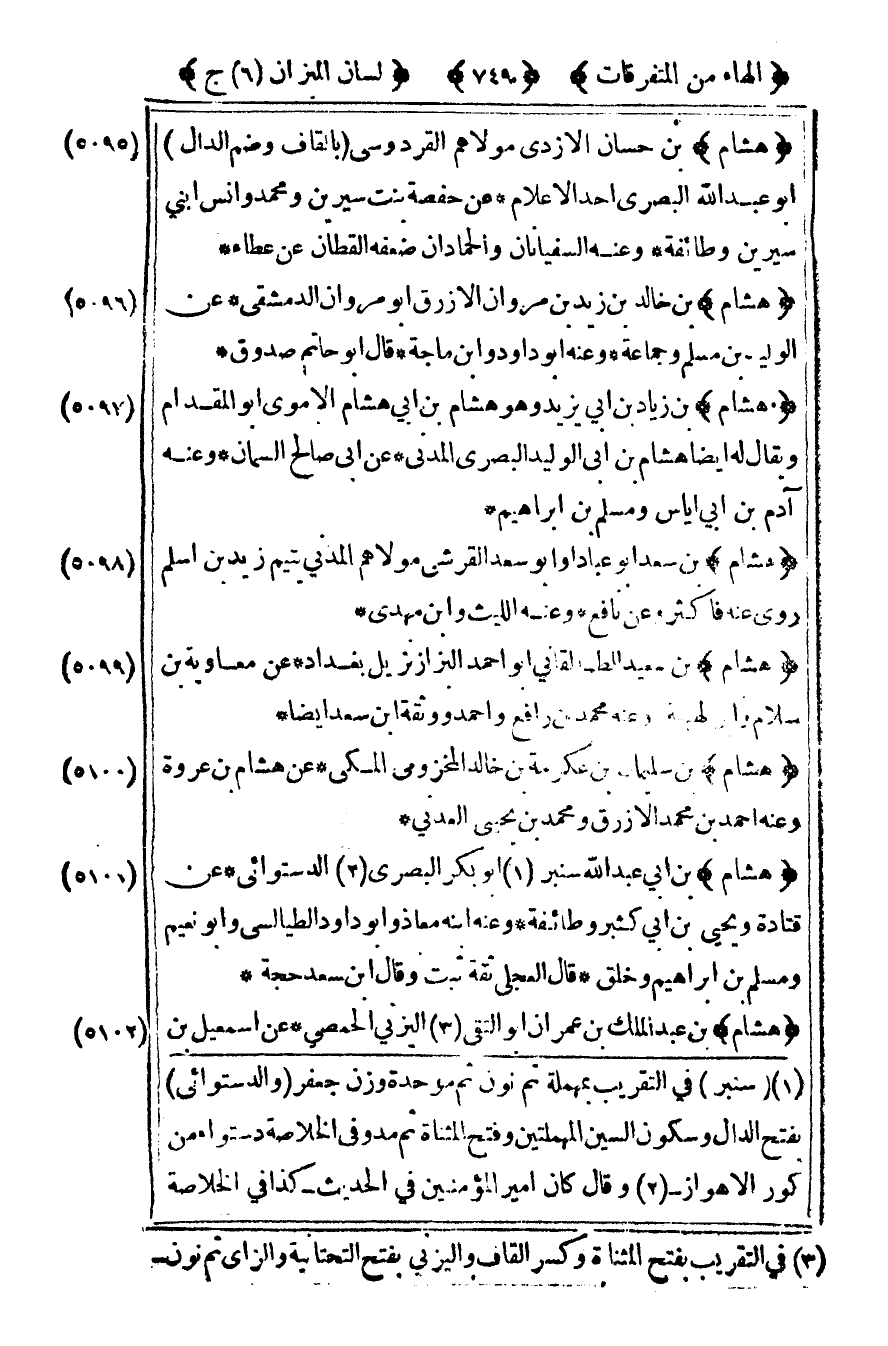 ﴿ الهاء من المتفرقات ﴾ ﴿ ٧٤٩ ﴾ ﴿ لسان الميزان (٦) ج ﴾
﴿ هشام ﴾ بن حسان الازدى مولاهم القردوسى (بالقاف وضم الدال ) (٥٠٩٥)
ابو عبد الله البصرى احد الاعلام * عن حفصة بنت سيرين ومحمد وانس ابني
سيرين وطائفة * وعنه السفيانان والحمادان ضعفه القطان عن عطاء *
﴿ هشام ﴾ بن خالد بن زيد بن مروان الازرق ابو مروان الدمشقى * عن (٥٠٩٦)
الوليد بن مسلم وجماعة * وعنه ابو داود وابن ماجة * قال ابو حاتم صدوق *
﴿ هشام ﴾ بن زياد بن ابي يزيد وهو هشام بن ابي هشام الاموى ابو المقدام (٥٠٩٧)
ويقال له ايضا هشام بن ابى الوليد البصرى المدنى * عن ابى صالح السمان * وعنه
آدم بن ابي اياس ومسلم بن ابراهيم *
﴿ هشام ﴾ بن سعد ابو عباد او ابو سعد القرشى مولاهم المدني يتيم زيد بن اسلم (٥٠٩٨)
روى عنه فاكثر * عن نافع * وعنه الليث وابن مهدى *
﴿ هشام ﴾ بن سعيد الطالقاني ابو احمد البزاز نزيل بغداد * عن معاوية بن (٥٠٩٩)
سلام وابن لهيعة وعنه محمد بن رافع واحمد ووثقة ابن سعد ايضا *
﴿ هشام ﴾ بن سليمان بن عكرمة بن خالد المخزومى المكى * عن هشام بن عروة (٥١٠٠)
وعنه احمد بن محمد الازرق ومحمد بن يحيى العدني *
﴿ هشام ﴾ بن ابي عبد الله سنبر (١) ابو بكر البصرى (٢) الدستوائى * عن (٥١٠١)
قتادة ويحيى بن ابي كثير وطائفة * وعنه ابنه معاذ وابو داود الطيالسى وابو نعيم
ومسلم بن ابراهيم وخلق * قال العجلى ثقة ثبت وقال ابن سعد حجة *
﴿ هشام ﴾ بن عبد الملك بن عمران ابو التقى (٣) اليزني الحمصي * عن اسمعيل بن (٥١٠٢)
(١) ( سنبر ) في التقريب بمهملة ثم نون ثم موحدة وزن جعفر (والدستوائى)
بفتح الدال وسكون السين المهملتين وفتح المثناة ثم مد وفى الخلاصة دستواء من
كور الاهواز ــ (٢) وقال كان امير المؤمنين في الحديث ــ كذا في الخلاصة
(٣) في التقريب بفتح المثناة وكسر القاف واليزني بفتح التحتانية والزاى ثم نون ــ